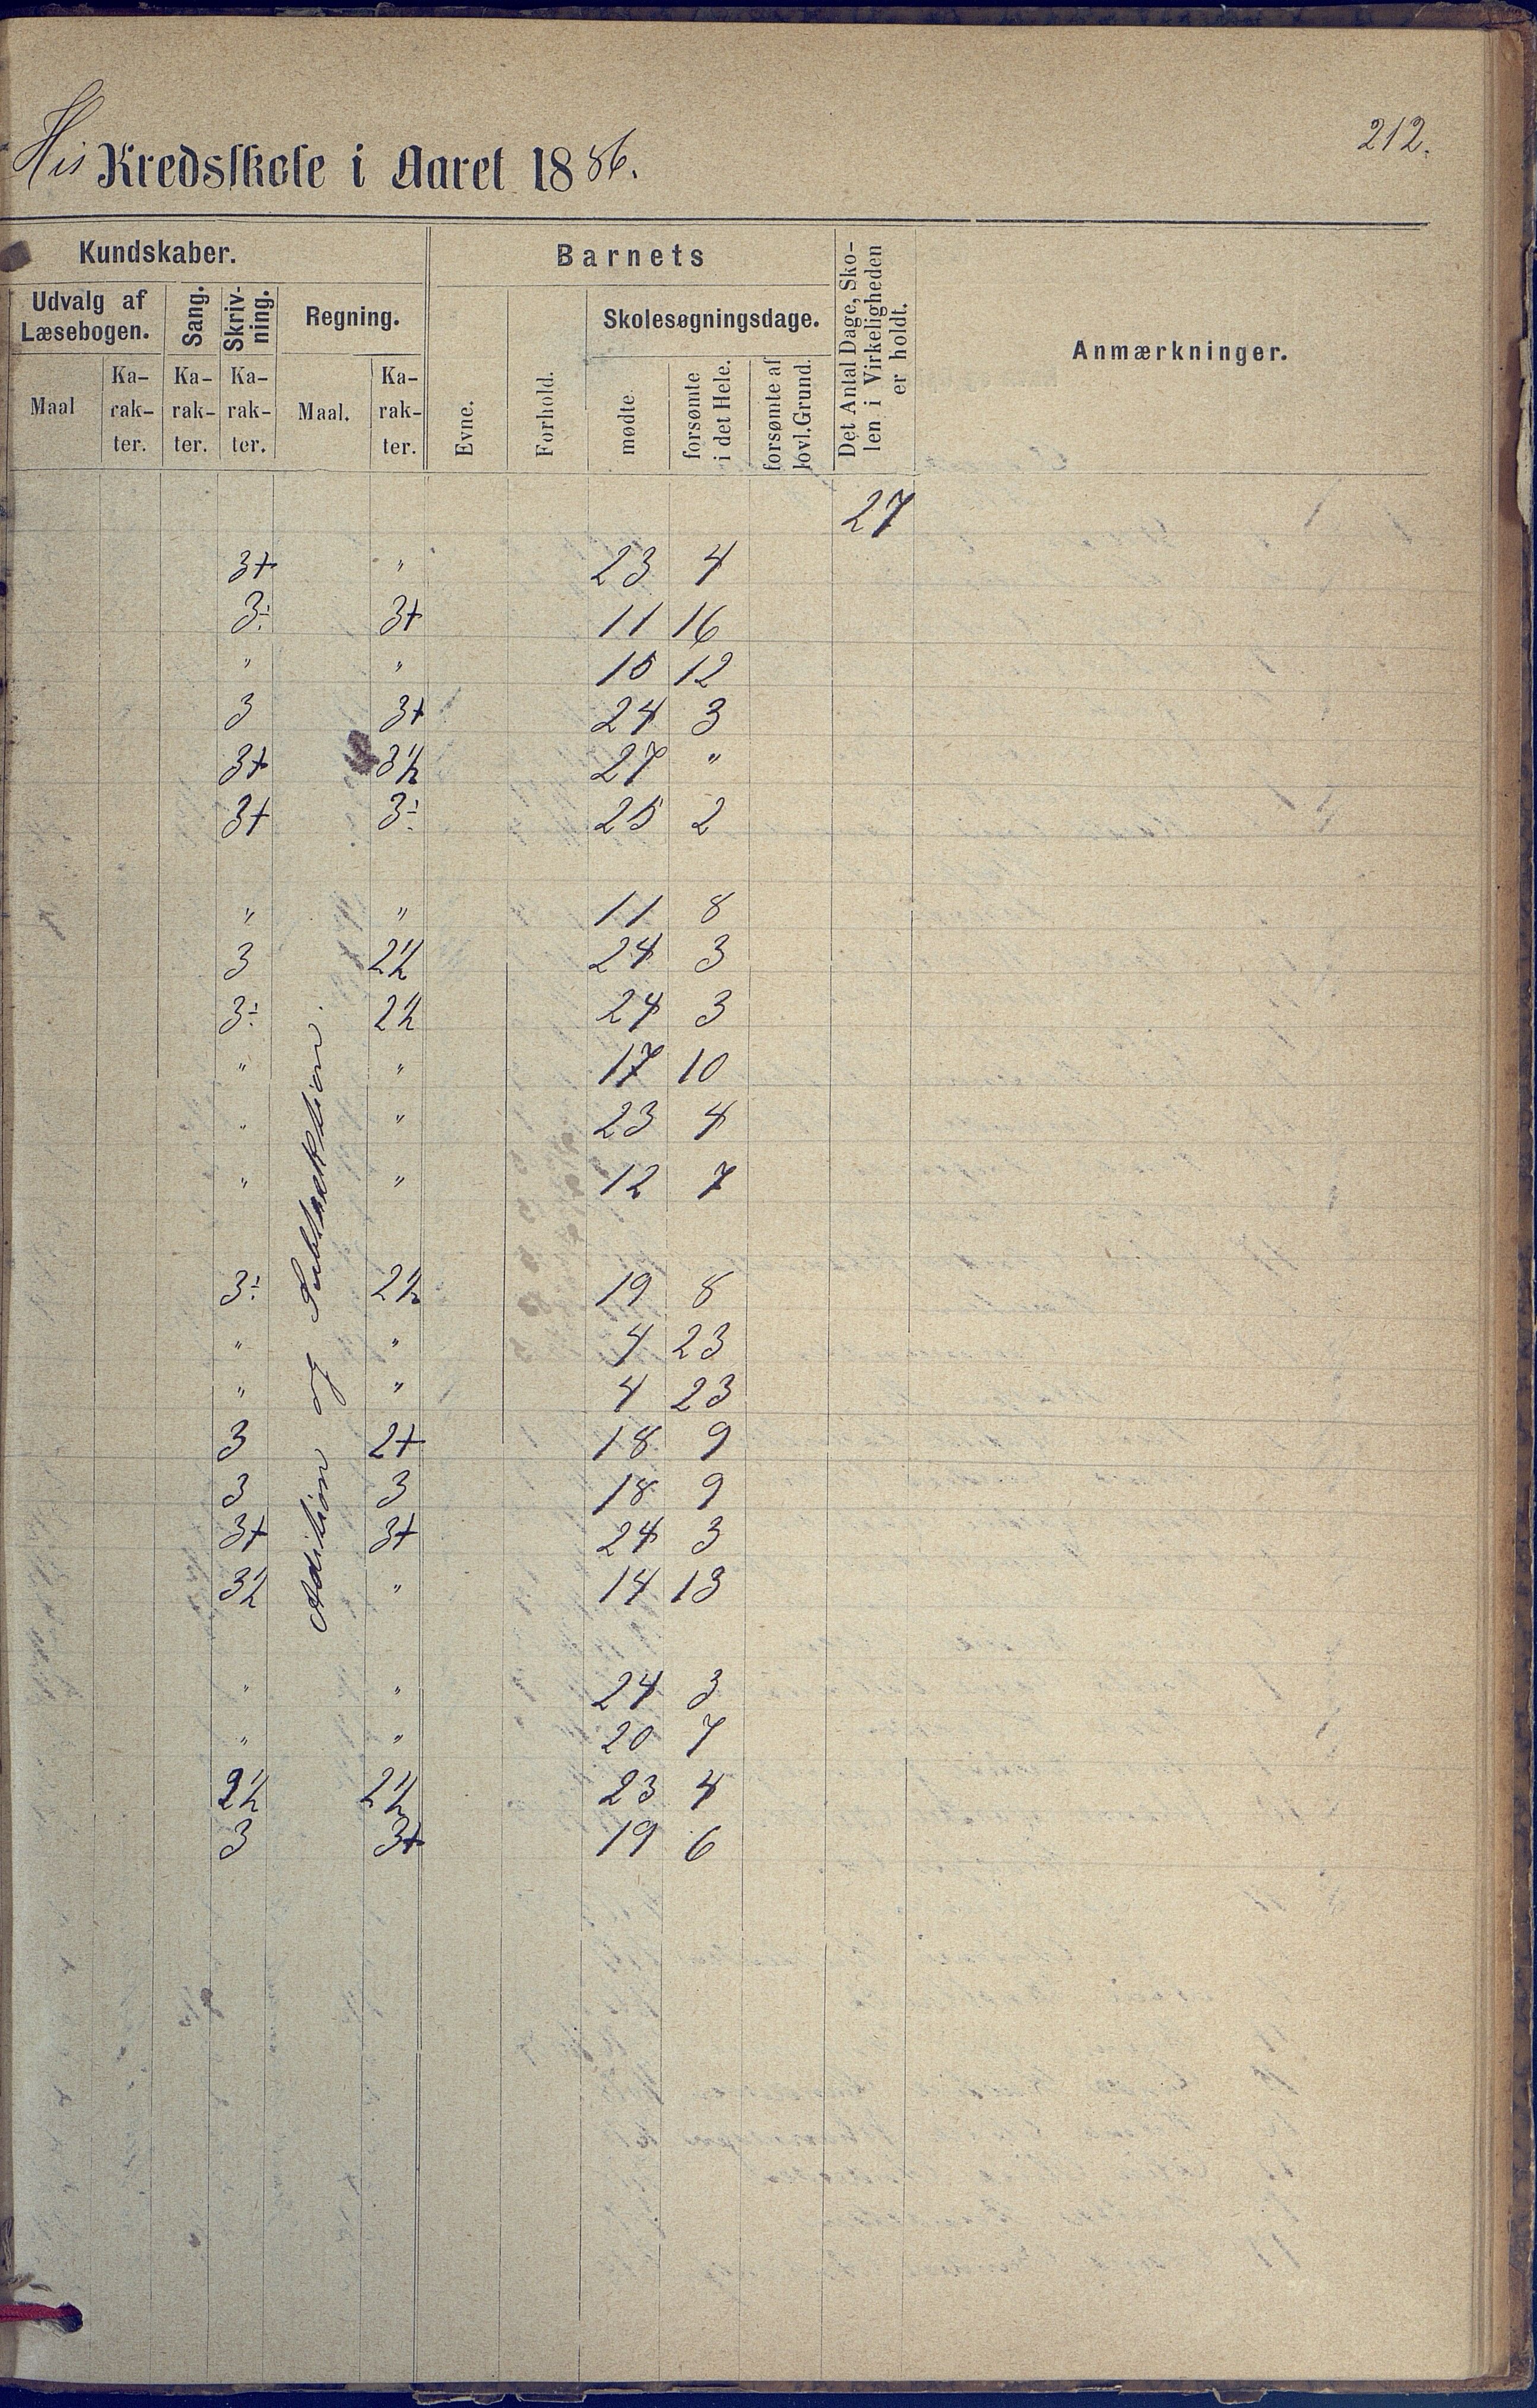 212.
His Kredsskole i Aaret 1886.
Kundskaber. Barnets Det Antal Dage, Sko-len i Virkeligheden er holdt. Anmærkninger.
Udvalg af Læsebogen. Sang. Skriv-ning. Regning. Evne. Forhold. Skolesøgningsdage.
Maal Ka-rak-ter. Ka-rak-ter. Ka-rak-ter. Maal. Ka-rak-ter. mødte forsømte i det Hele. forsømte af lovl. Grund.
27
3+ " 23 4
3÷ 3+ 11 16
" " 15 12
3 3+ 24 3
3+ 3½ 27 "
3+ 3÷ 25 2
" " 11 8
3 2½ 24 3
3÷ 2½ 24 3
" " 17 10
" " 23 4
" " 12 7
3÷ 2½ 19 8
" " 4 23
" " 4 23
3 2+ 18 9
3 3 18 9
3+ 3+ 24 3
3½ " 14 13
" " 24 3
" " 20 7
2½ 2½ 23 4
3 3+ 19 6
Addition og Subtraktion.